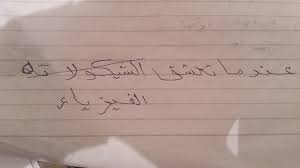 عندما تعشق الشيكولاته
الفيزياء